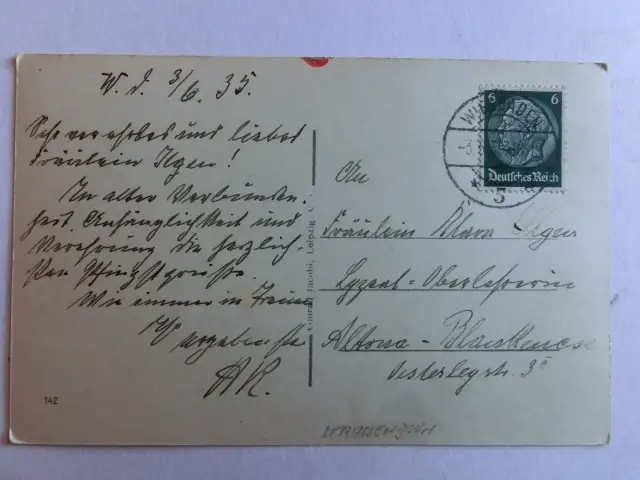 W. d. 3/6. 35.
Sehr verehrtes und liebes
Fräulein Ilgen!
In alter Verbunden-
heit, Anhänglichkeit und
Verehrung die herzlich-
sten Pfingstgrüße.
Wie immer in Treue
Ihr ergebenster
AR.
142
Conrad Jacobi, Leipzig
6 6
Deutsches Reich
WIESBADEN
5
An
Fräulein Klara Ilgen
Lyzeal-Oberlehrerin
Altona-Blankenese
Oesterlegstr. 3
STRASSENBAHN